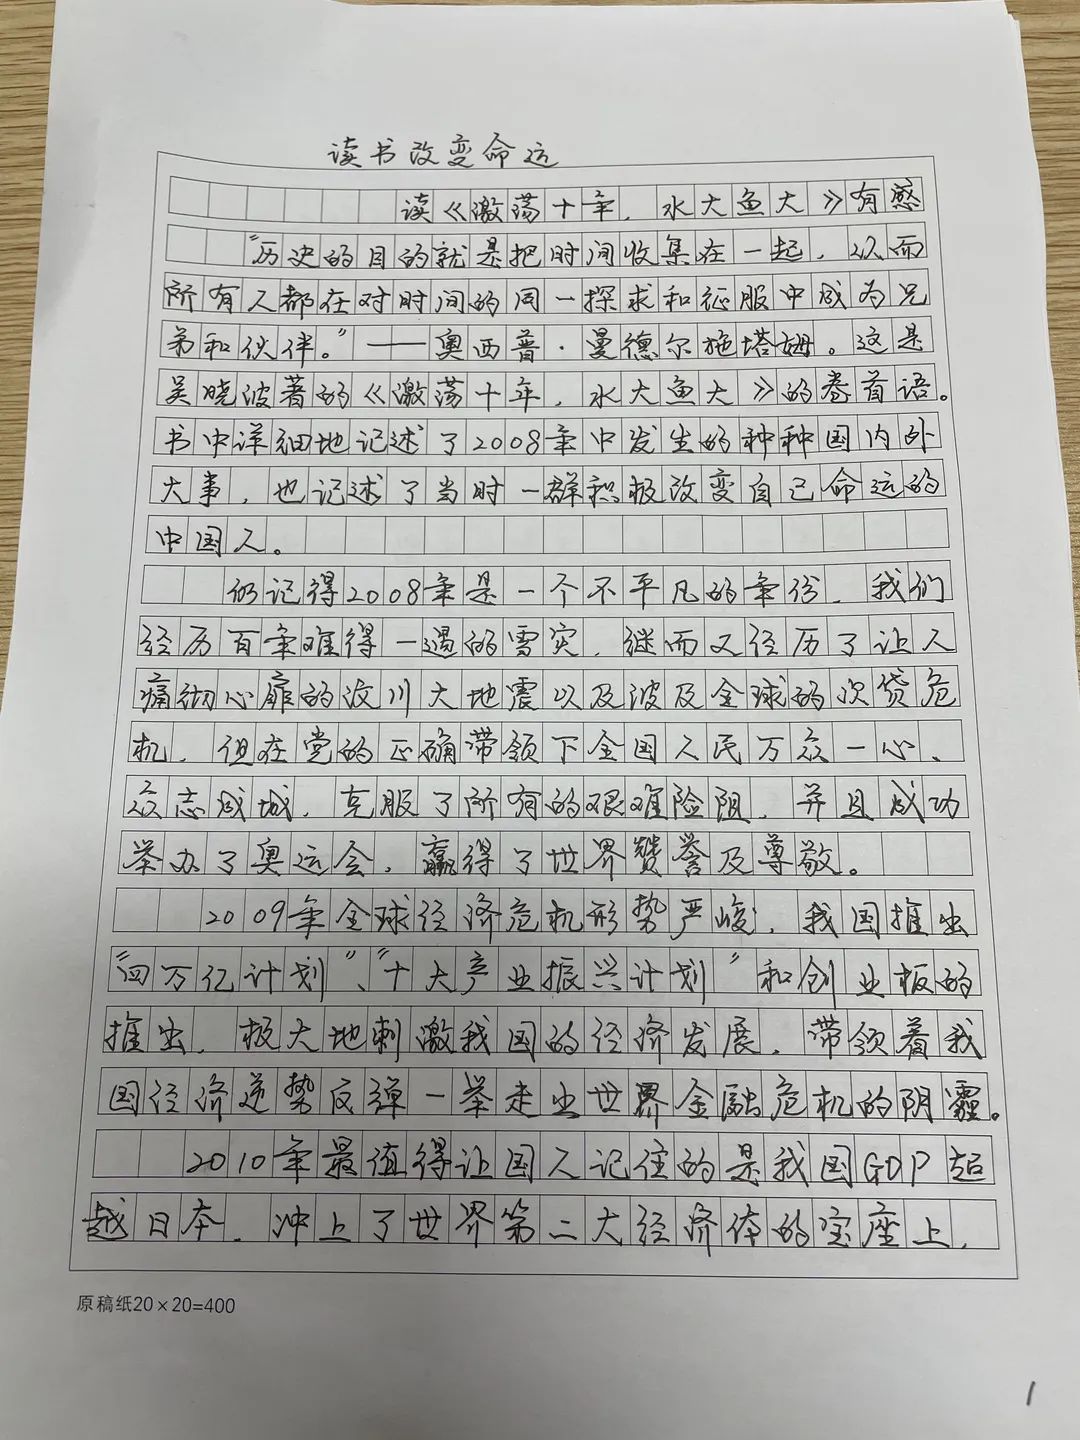 读书改变命运
读《激荡十年，水大鱼大》有感
"历史的目的就是把时间收集在一起，从而
所有人都在对时间的同一探求和征服中成为兄
弟和伙伴。"——奥西普·曼德尔施塔姆。这是
吴晓波著的《激荡十年，水大鱼大》的卷首语。
书中详细地记述了2008年中发生的种种国内外
大事，也记述了当时一群积极改变自己命运的
中国人。
仍记得2008年是一个不平凡的年份，我们
经历百年难得一遇的雪灾，继而又经历了让人
痛彻心扉的汶川大地震以及波及全球的次贷危
机，但在党的正确带领下全国人民万众一心、
众志成城，克服了所有的艰难险阻，并且成功
举办了奥运会，赢得了世界赞誉及尊敬。
2009年全球经济危机形势严峻，我国推出
"四万亿计划"、"十大产业振兴计划"和创业板的
推出，极大地刺激我国的经济发展，带领着我
国经济逆势反弹一举走出世界金融危机的阴霾。
2010年最值得让国人记住的是我国GDP超
越日本，冲上了世界第二大经济体的宝座上，
原稿纸20×20=400
1